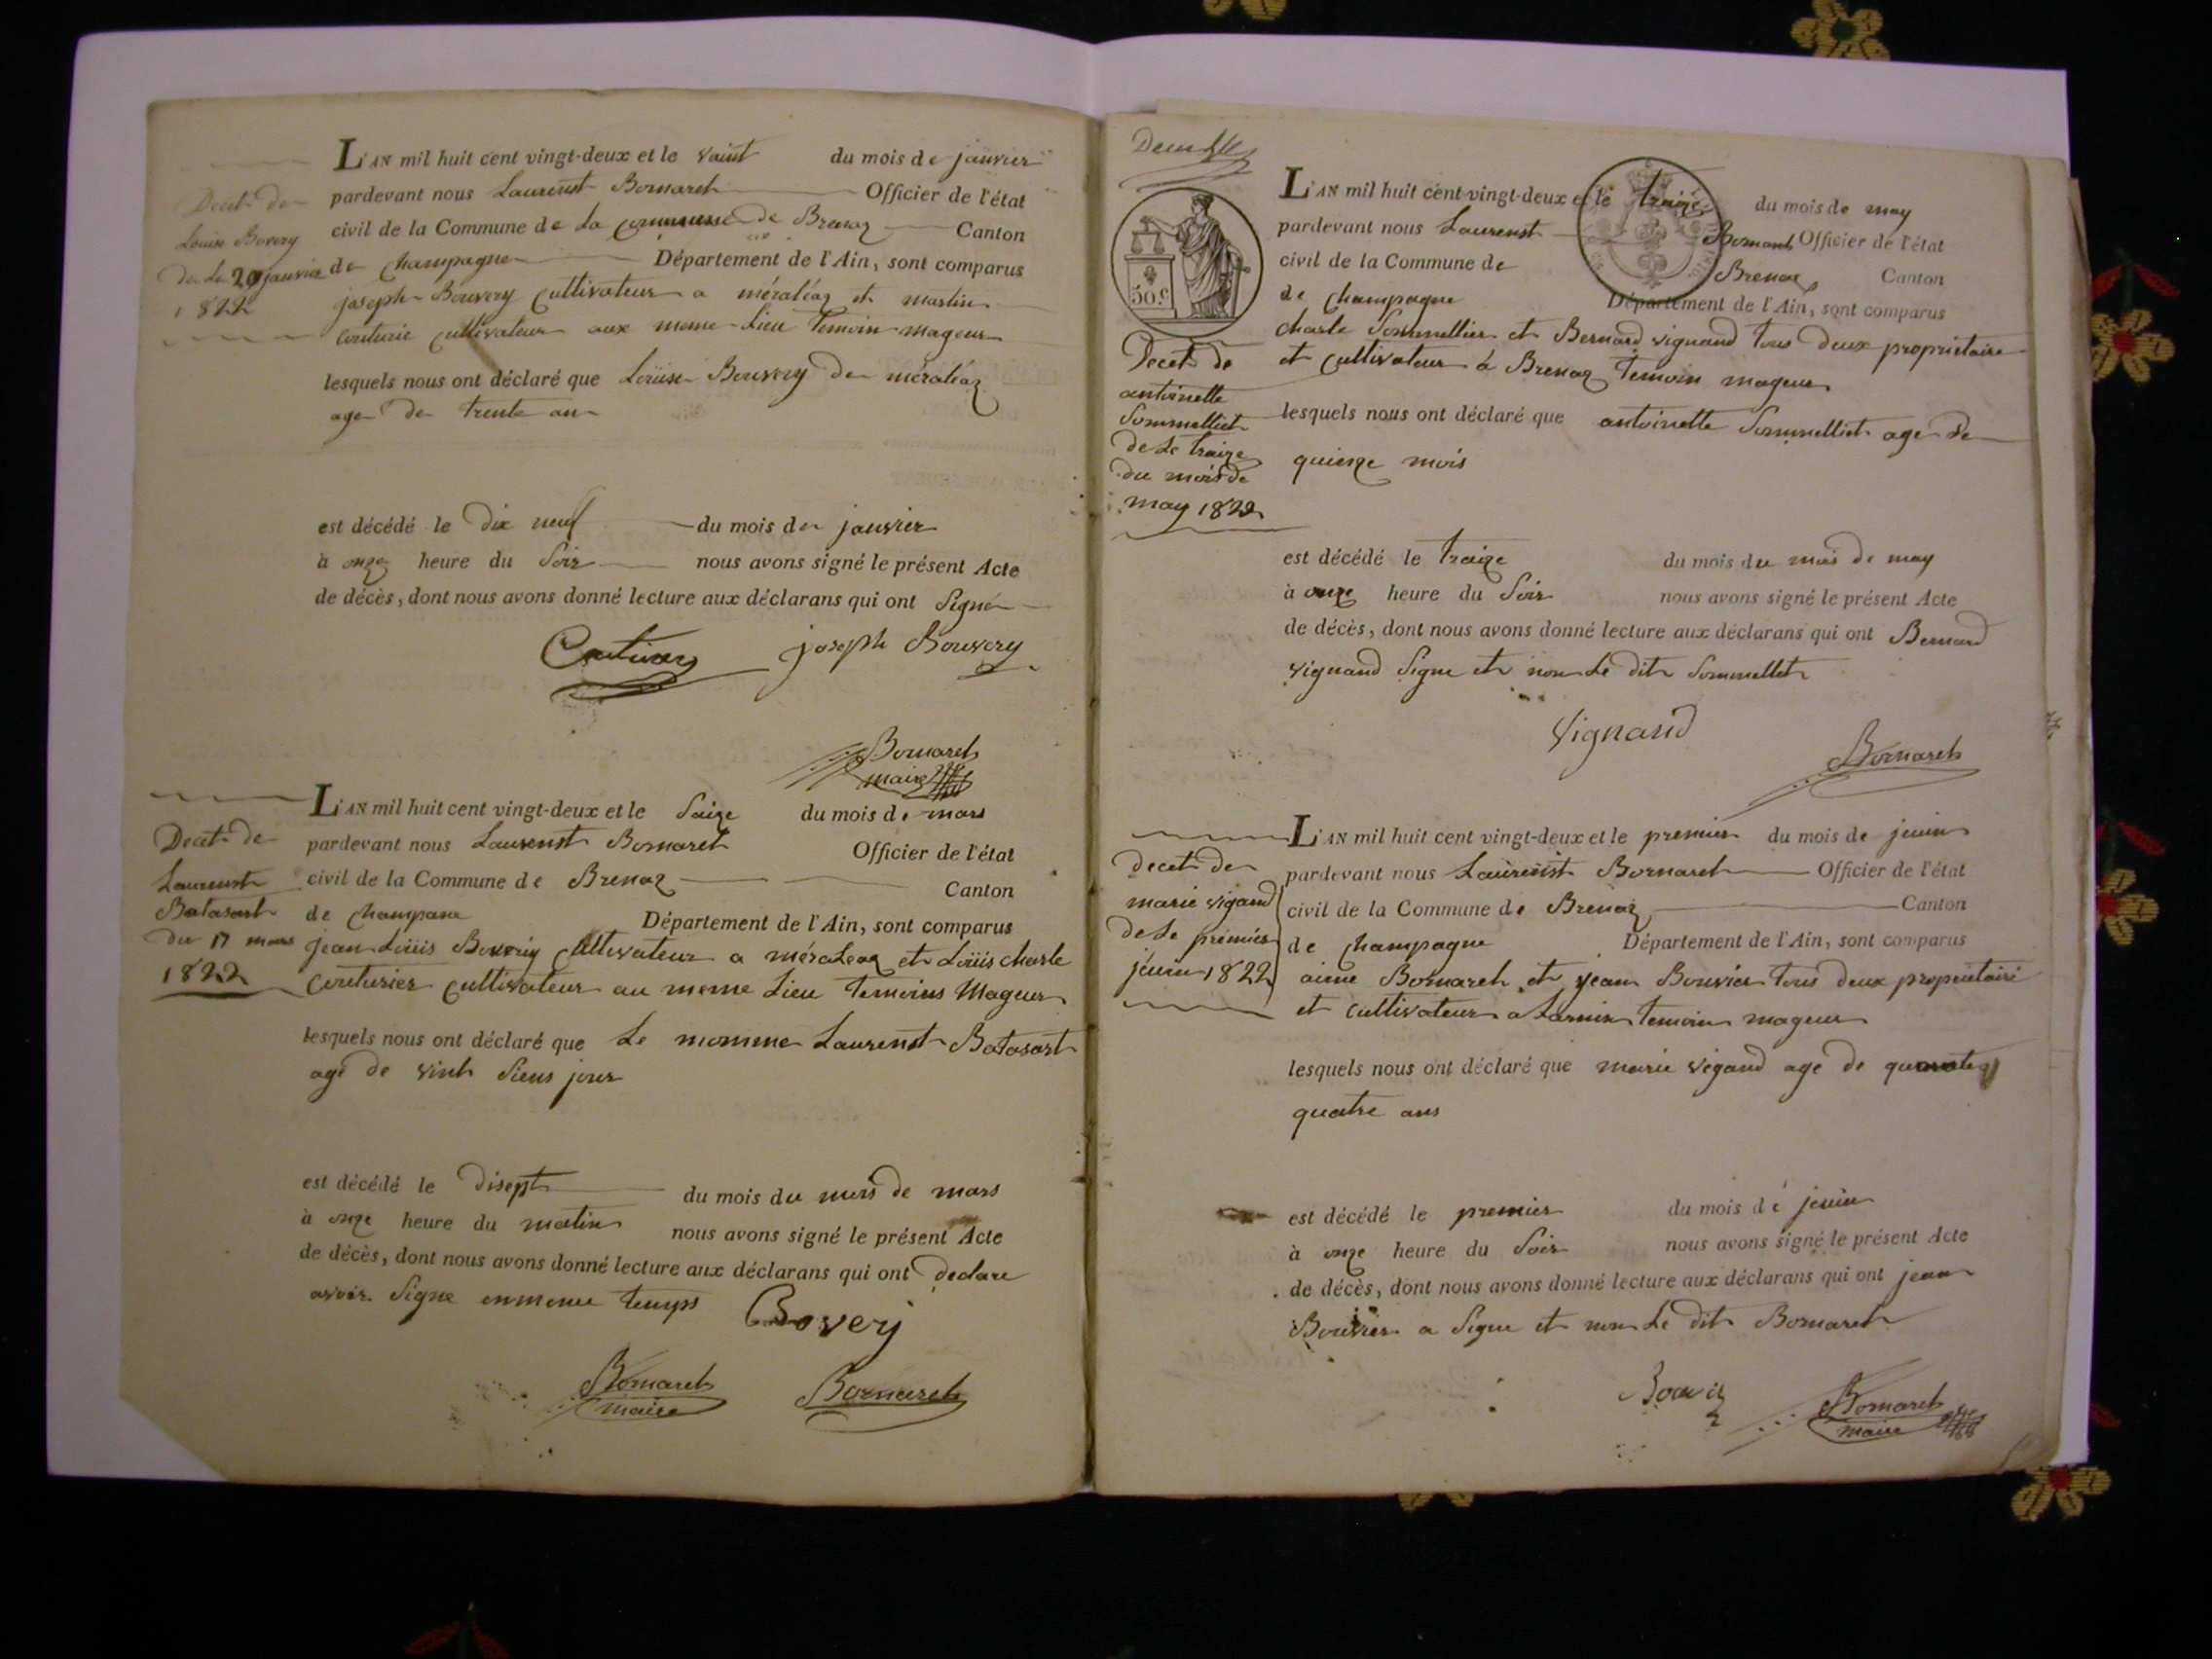 L'AN mil huit cent vingt-deux et le vaint du mois de janvier
pardevant nous Laurenst Bornaret Officier de l'état
civil de la Commune de La commune de Brenaz Canton
de Champagne Département de l'Ain, sont comparus
joseph Bouvery cultivateur a méraléaz et martin
couturie cultivateur aux meme Lieu temoin mageur
lesquels nous ont déclaré que Loüise Bouvery de méraléaz
age de trente an
Decet de
Louise Bovery
du Le 20 janvier
1822
est décédé le dix neuf du mois de janvier
à onze heure du Soir nous avons signé le présent Acte
de décès, dont nous avons donné lecture aux déclarans qui ont Signé
joseph Bouvery
Bornaret
maire
L'AN mil huit cent vingt-deux et le Saize du mois de mars
pardevant nous Laurenst Bornaret Officier de l'état
civil de la Commune de Brenaz Canton
de Champane Département de l'Ain, sont comparus
jean Loüis Bouvriy cultivateur a méraleaz et Loüis charle
couturier cultivateur au meme Lieu temoins Mageur
lesquels nous ont déclaré que Le momme Laurenst Batasart
age de vint Siens jour
Decet de
Laurenst
Batasart
du 17 mars
1822
est décédé le disept du mois du mois de mars
à onze heure du matin nous avons signé le présent Acte
de décès, dont nous avons donné lecture aux déclarans qui ont declare
avoir Signe enmeme temps
Bovery
Bornaret
maire
Bornaret
50.c
L'AN mil huit cent vingt-deux et le traize du mois de may
pardevant nous Laurenst Bornaret Officier de l'état
civil de la Commune de Brenaz Canton
de Champagne Département de l'Ain, sont comparus
charle Sommellier et Bernard vignand tous deux proprietaire
et cultivateur à Brenaz temoin mageur
lesquels nous ont déclaré que antoinette Sommelliet age de
quienze mois
Decet de
antoinette
Sommelliet
de Le traize
du mois de
may 1822
est décédé le traize du mois du mois de may
à onze heure du Soir nous avons signé le présent Acte
de décès, dont nous avons donné lecture aux déclarans qui ont Bernard
vignand Signe et non Le dit Sommellet
Vignand
Bornaret
L'AN mil huit cent vingt-deux et le premier du mois de jeuin
pardevant nous Laurenist Bornaret Officier de l'état
civil de la Commune de Brenaz Canton
de Champagne Département de l'Ain, sont comparus
aime Bornaret et jean Bouvier tous deux proprietaire
et cultivateur a Larnin temoin mageur
lesquels nous ont déclaré que marie vigand age de quarante
quatre ans
decet de
marie vigand
de Le premier
jeuin 1822
est décédé le premier du mois de jeuin
à onze heure du Soir nous avons signé le présent Acte
de décès, dont nous avons donné lecture aux déclarans qui ont jean
Bouvier a Signe et non Le dit Bornaret
Bornaret
maire